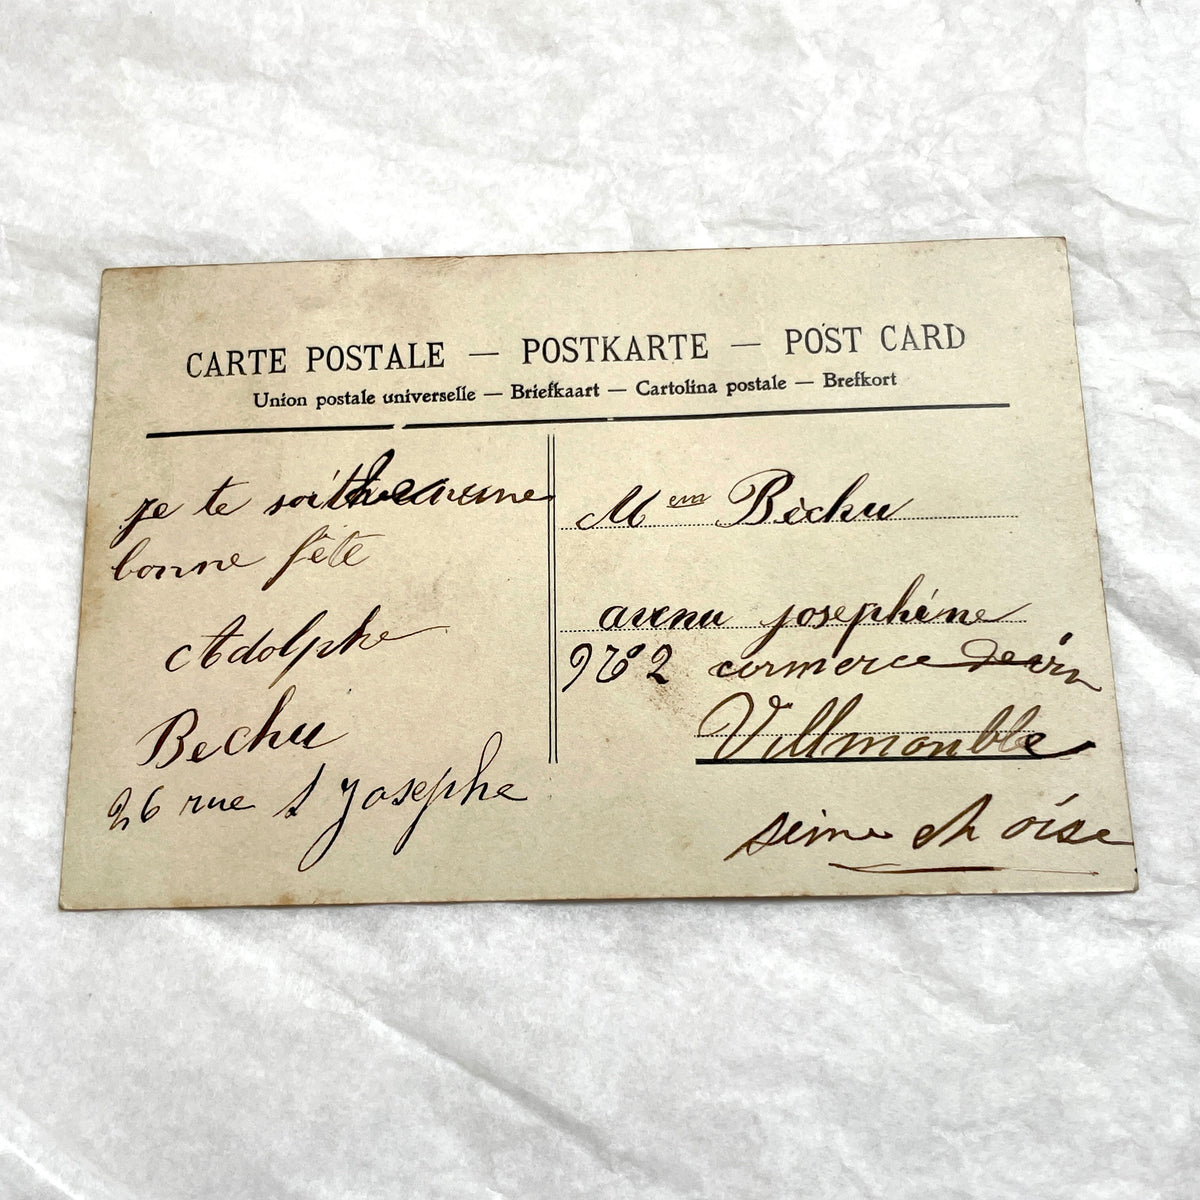 CARTE POSTALE — POSTKARTE — POST CARD
Union postale universelle — Briefkaart — Cartolina postale — Brefkort
je te une
bonne fête
Adolphe
Bechu
26 rue s Josephe
M em Bechu
avenu josephine
commerce
Villmonble
seine et oise